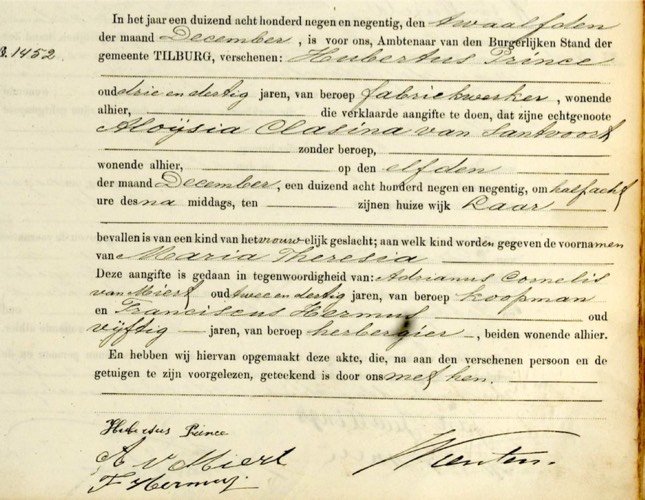 In het jaar een duizend acht honderd negen en negentig, den twaalfden
der maand December, is voor ons, Ambtenaar van den Burgerlijken Stand der
gemeente TILBURG, verschenen: Hubertus Prince
1452
oud drie en dertig jaren, van beroep fabriekwerker, wonende
alhier, die verklaarde aangifte te doen, dat zijne echtgenoote
Aloÿsia Clasina van Santvoort
zonder beroep,
wonende alhier, op den elfden
der maand December, een duizend acht honderd negen en negentig, om half acht
ure des na middags, ten zijnen huize wijk Laar
bevallen is van een kind van het vrouwelijk geslacht; aan welk kind worden gegeven de voornamen
van Maria Theresia
Deze aangifte is gedaan in tegenwoordigheid van: Adrianus Cornelis
van Miert oud twee en dertig jaren, van beroep koopman
en Franciscus Hermus oud
vijftig jaren, van beroep herbergier, beiden wonende alhier.
En hebben wij hiervan opgemaakt deze akte, die, na aan den verschenen persoon en de
getuigen te zijn voorgelezen, geteekend is door ons met hen.
Hubertus Prince
A v Miert
F. Hermus